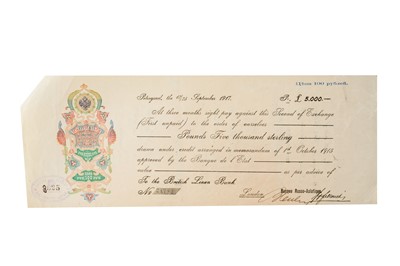 Цѣна 100 рублей.
Petrograd, the September 1917. £ 5.000.—
At three months sight pay against this Second of Exchange
(First unpaid) to the order of ourselves
Pounds Five thousand sterling
drawn under credit arranged in memorandum of 1st October 1915
approved by the Banque de l'Etat
value as per advice of
To the British Linen Bank
No London Banque Russo-Asiatique